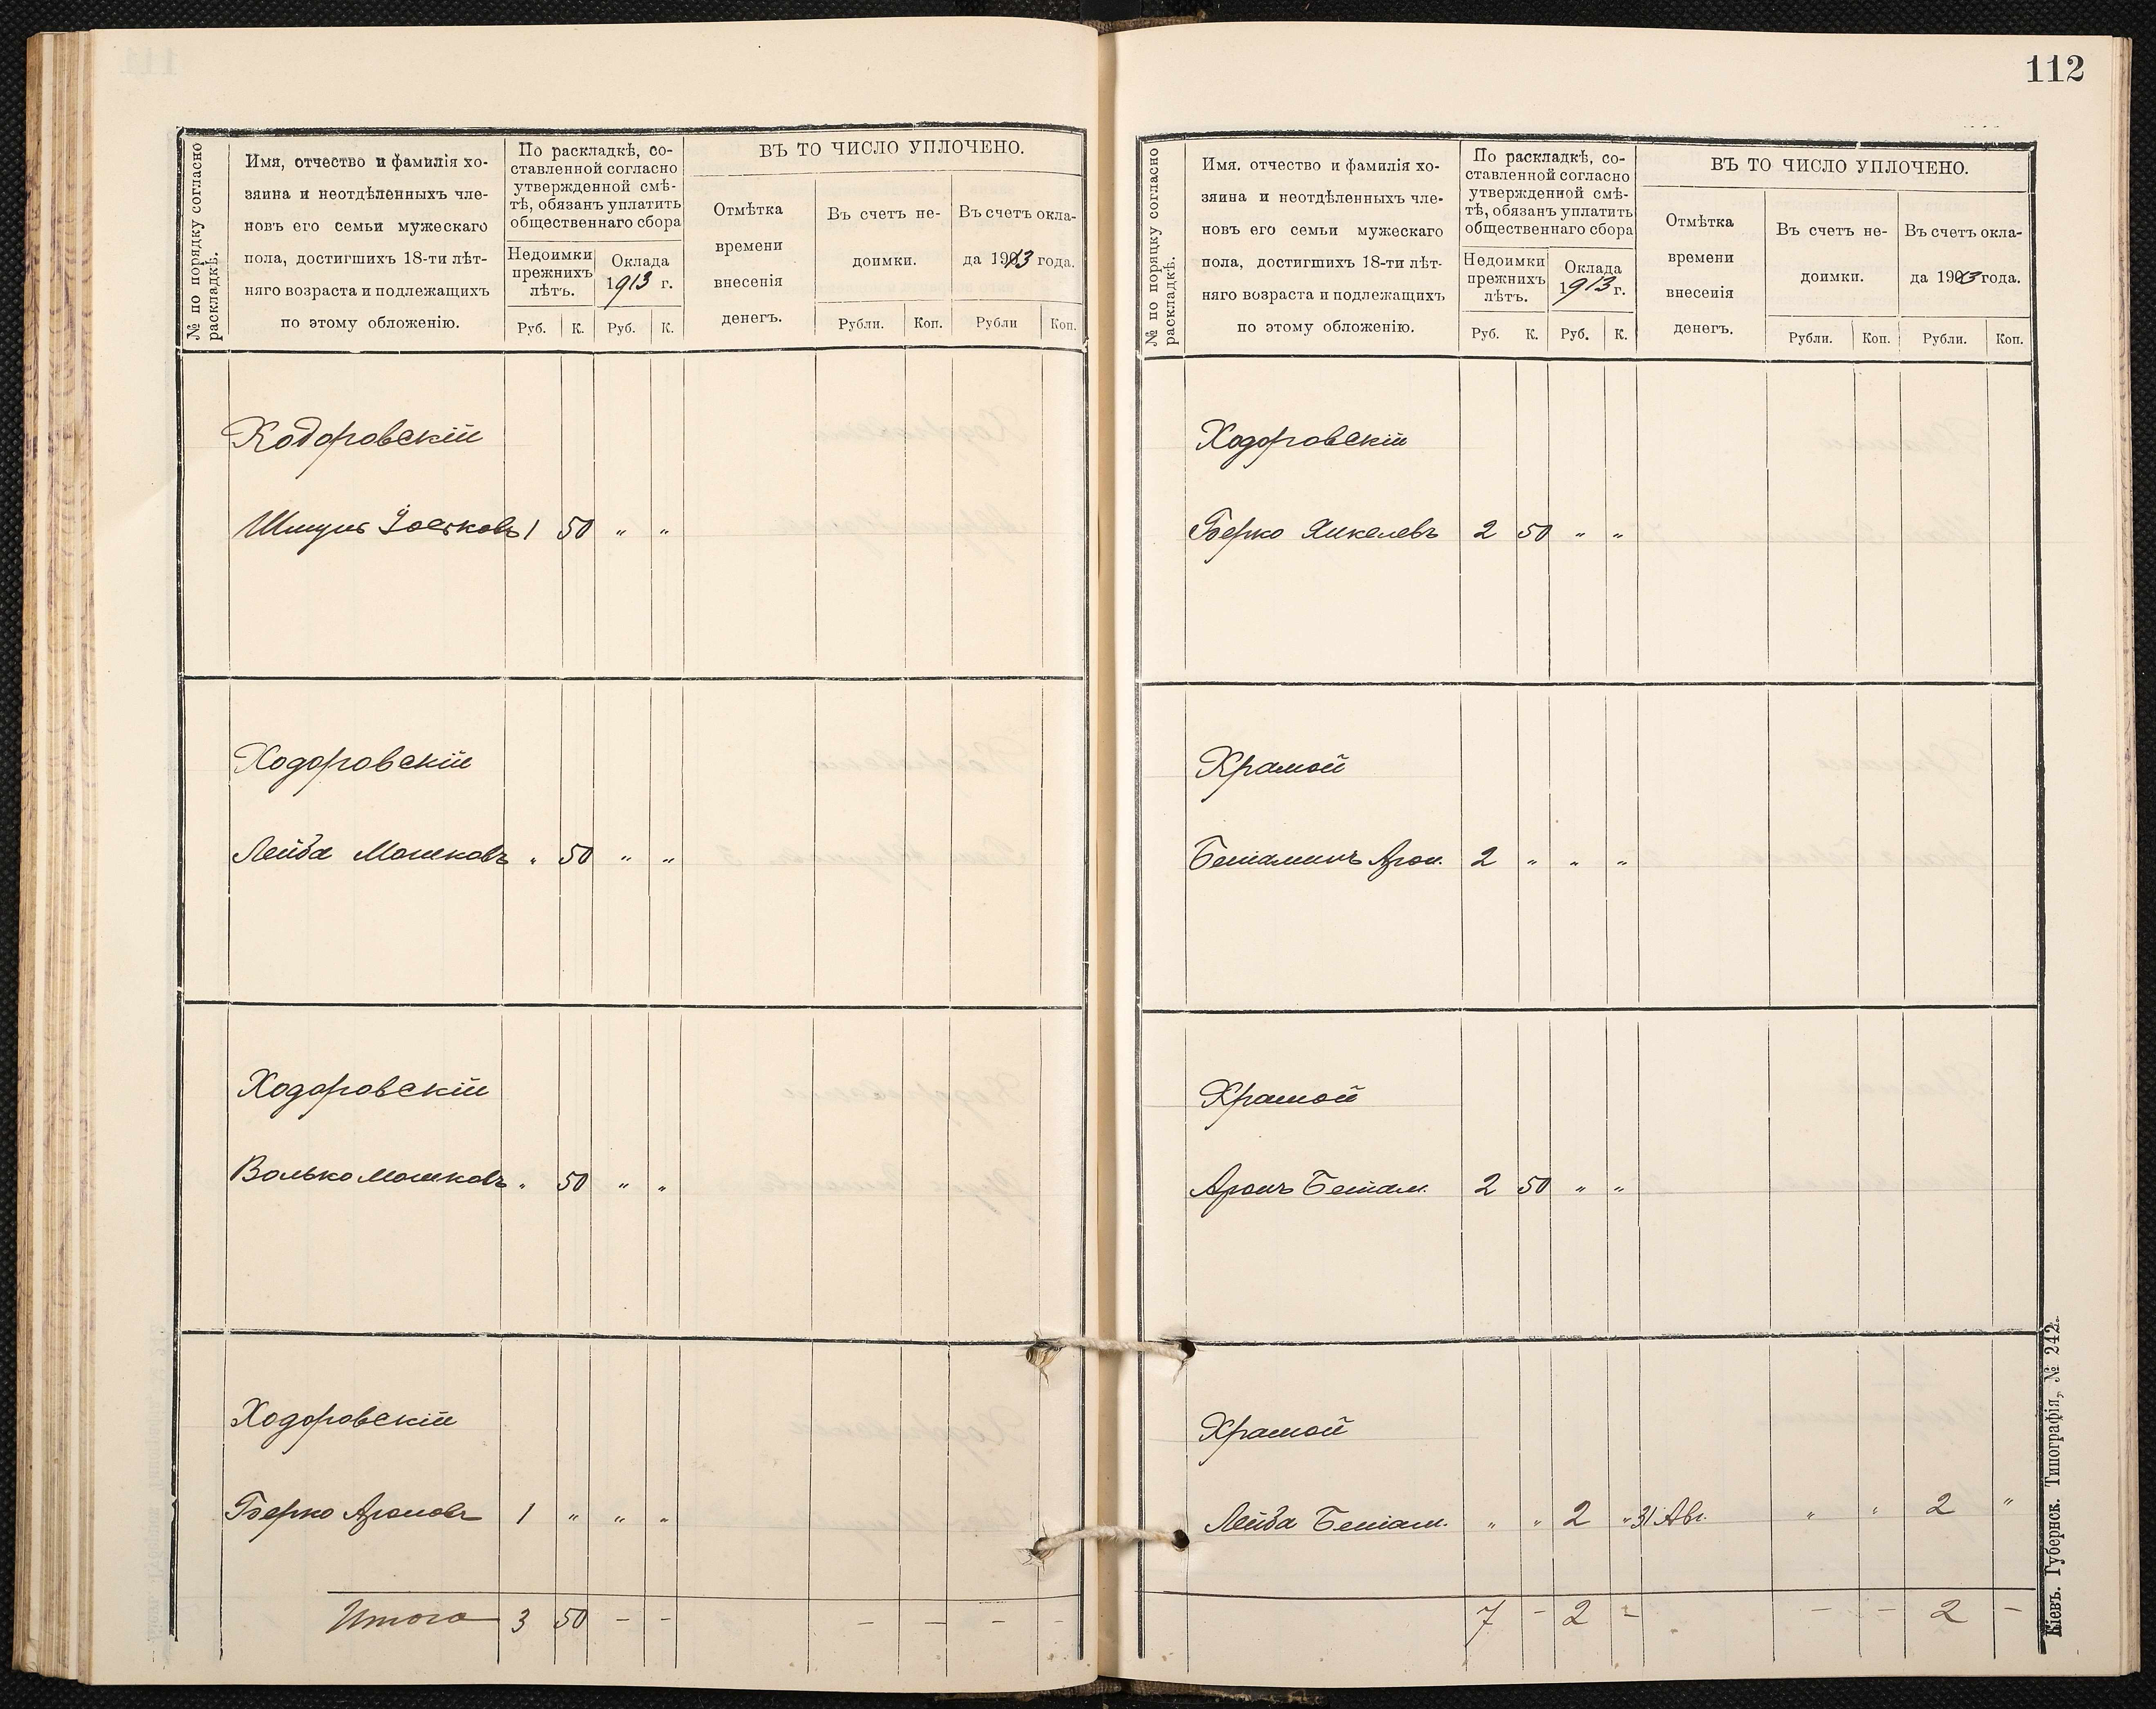 112
№ по порядку согласно раскладкѣ.
Имя, отчество и фамилія хо-
зяина и неотдѣленныхъ чле-
новъ его семьи мужескаго
пола, достигшихъ 18-ти лѣт-
няго возраста и подлежащихъ
по этому обложенію.
По раскладкѣ, со-
ставленной согласно
утвержденной смѣ-
тѣ, обязанъ уплатить
общественнаго сбора
Недоимки
прежнихъ
лѣтъ.
Оклада
1913 г.
Руб. К. Руб. К.
ВЪ ТО ЧИСЛО УПЛОЧЕНО.
Отмѣтка
времени
внесенія
денегъ.
Въ счетъ не-
доимки.
Въ счетъ окла-
да 1913 года.
Рубли. Коп. Рубли Коп.
Ходоровскій
Шмуль 1 50 " "
Ходоровскій
Лейба Мошковъ " 50 " "
Ходоровскій
Волько Мошковъ " 50 " "
Ходоровскій
Берко Ароновъ 1 " " "
Итого 3 50 - - - - - -
№ по порядку согласно раскладкѣ.
Имя, отчество и фамилія хо-
зяина и неотдѣленныхъ чле-
новъ его семьи мужескаго
пола, достигшихъ 18-ти лѣт-
няго возраста и подлежащихъ
по этому обложенію.
По раскладкѣ, со-
ставленной согласно
утвержденной смѣ-
тѣ, обязанъ уплатить
общественнаго сбора
Недоимки
прежнихъ
лѣтъ.
Оклада
1913 г.
Руб. К. Руб. К.
ВЪ ТО ЧИСЛО УПЛОЧЕНО.
Отмѣтка
времени
внесенія
денегъ.
Въ счетъ не-
доимки.
Въ счетъ окла-
да 1913 года.
Рубли. Коп. Рубли. Коп.
Ходоровскій
Берко Янкелевъ 2 50 " "
Храмой
Беніаминъ Арон. 2 " " "
Храмой
Аронъ Беніам. 2 50 " "
Храмой
Лейба Беніам. " " 2 " 31 Авг. " " 2 "
7 - 2 - - - 2 -
Кіевъ. Губернск. Типографія, № 242.